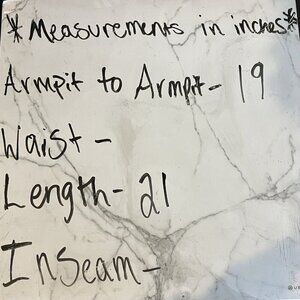 *Measurements in inches*
Armpit to Armpit- 19
Waist -
Length- 21
Inseam-